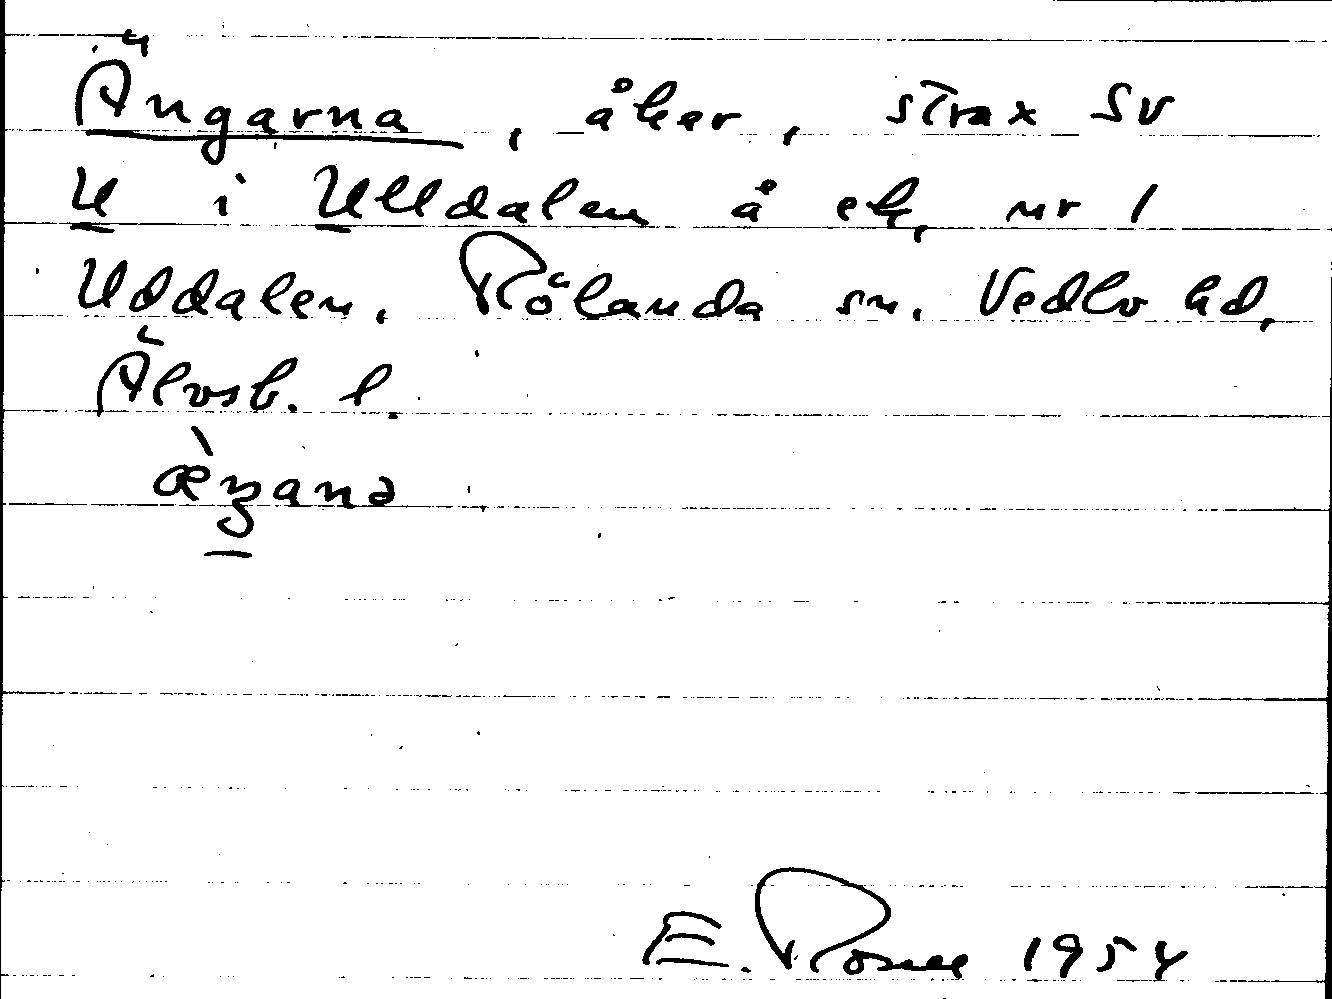 Ängarna, åker, strax SV
U i Ulldalen å ek, nr 1
Uddalen. Rölanda sn. Vedbo hd,
Älvsb. l.
E. Rosell 1954